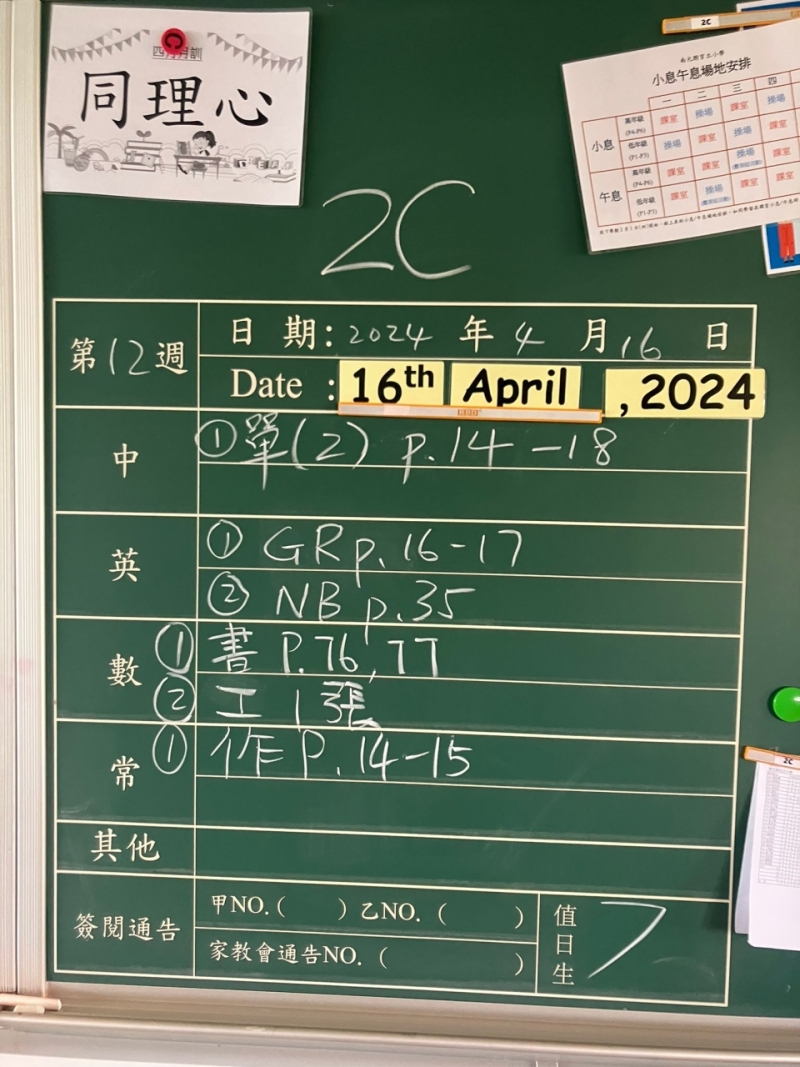 四月月訓
同理心
2C
南元朗官立小學
小息午息場地安排
一 二 三 四
小息 高年級 (P4-P6) 課室 操場 課室 操場
低年級 (P1-P3) 操場 課室 操場 課室
午息 高年級 (P4-P6) 課室 課室 操場 課室
低年級 (P1-P3) 課室 操場 課室 課室
2C
第12週
日 期: 2024 年 4 月 16 日
Date : 16th April , 2024
中
① 單(2) p.14-18
英
① GR p.16-17
② NB p.35
數
① 書 P.76, 77
② 工 1張
常
① 作 P.14-15
其他
簽閱通告
甲NO.( ) 乙NO. ( )
家教會通告NO. ( )
值日生 7
2C